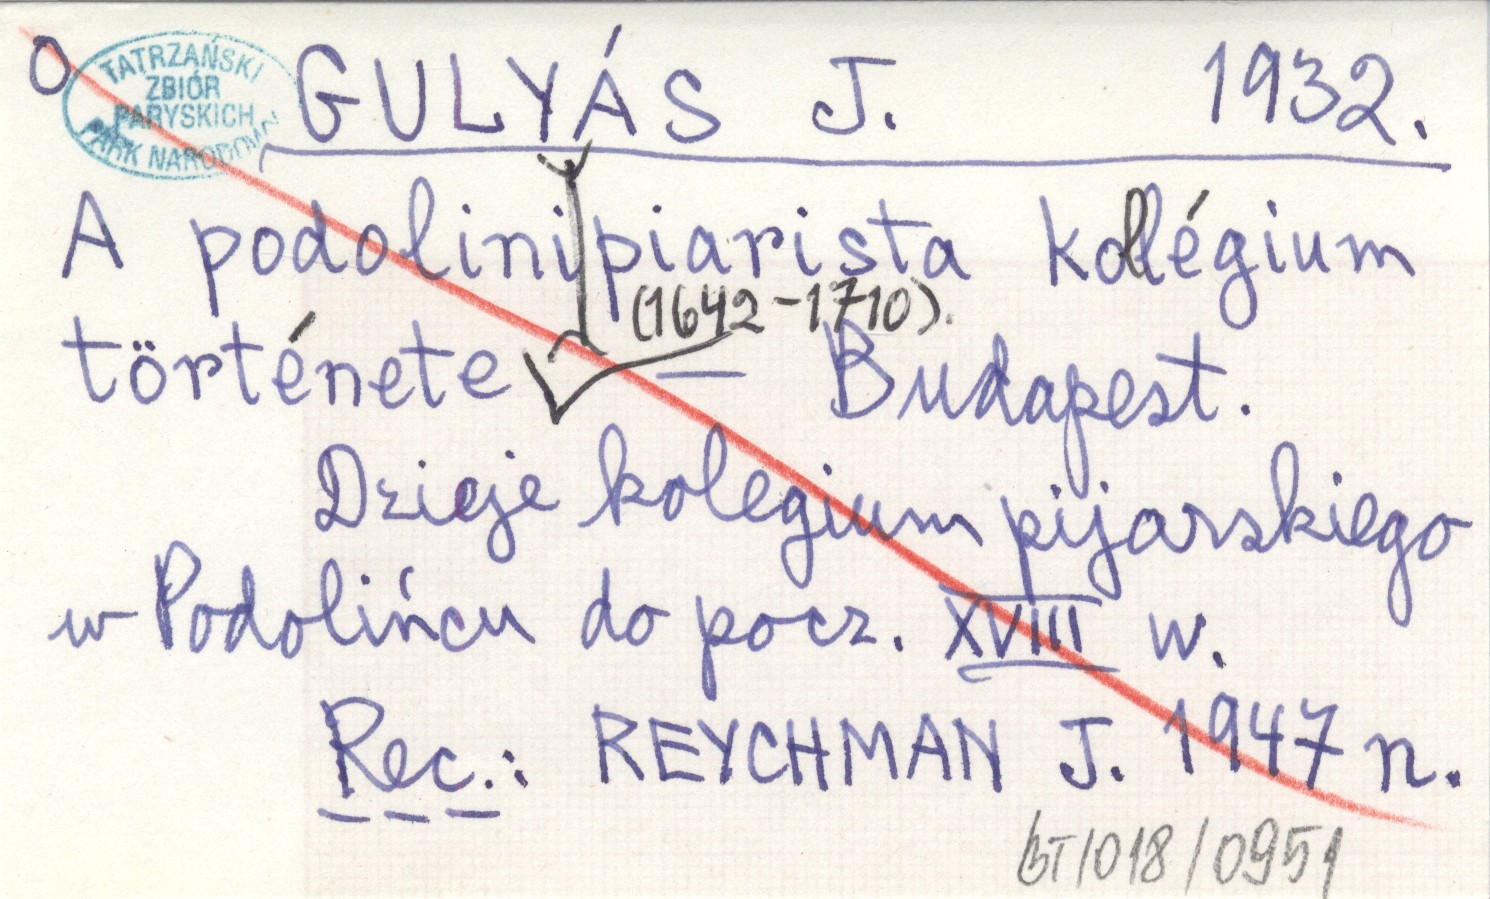 O
TATRZAŃSKI
ZBIÓR
PARYSKICH
PARK NARODOWY
GULYÁS J. 1932.
A podolini piarista kollégium
(1642-1710).
története — Budapest.
Dzieje kolegium pijarskiego
w Podolińcu do pocz. XVIII w.
Rec.: REYCHMAN J. 1947 n.
BT/018/0951